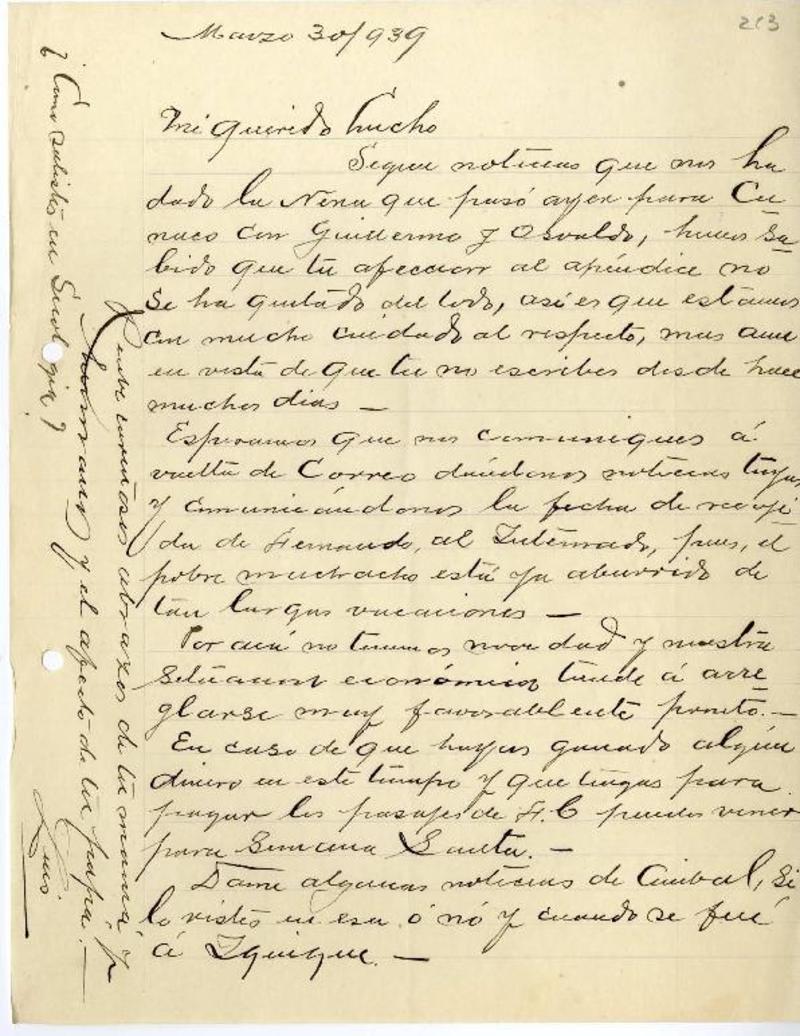 213
Marzo 30/939
Mi querido Lucho
Segun noticias que nos ha
dado la Nena que pasó ayer para Cu
naco con Guillermo y Osvaldo, hemos sa-
bido que tu afeccion al apéndice no
se ha quitado del todo, asi es que estamos
con mucho cuidado al respecto, mas aun
en vista de que tu no escribes desde hace
muchos dias —
Esperamos que nos comuniques á
vuelta de Correo dándonos noticias tuyas
y comunicándonos la fecha de recoji
da de Fernando, al Internado, pues, el
pobre muchacho está ya aburrido de
tan largas vacaciones —
Por acá no tenemos novedad y nuestra
situacion económica tiende á arre-
glarse muy favorablemente pronto. —
En caso de que hayas ganado algún
dinero en este tiempo y que tengas para
pagar los pasajes de F.C puedes venir
para Semana Santa. —
Dame algunas noticias de Anibal, si
lo vistes en esa ó nó y cuando se fué
á Iquique. —
Recibe cariñosos abrazos de tu mamá y
hermano y el afecto de tu papá. —
Luis
¿Como salistes en Serologia?